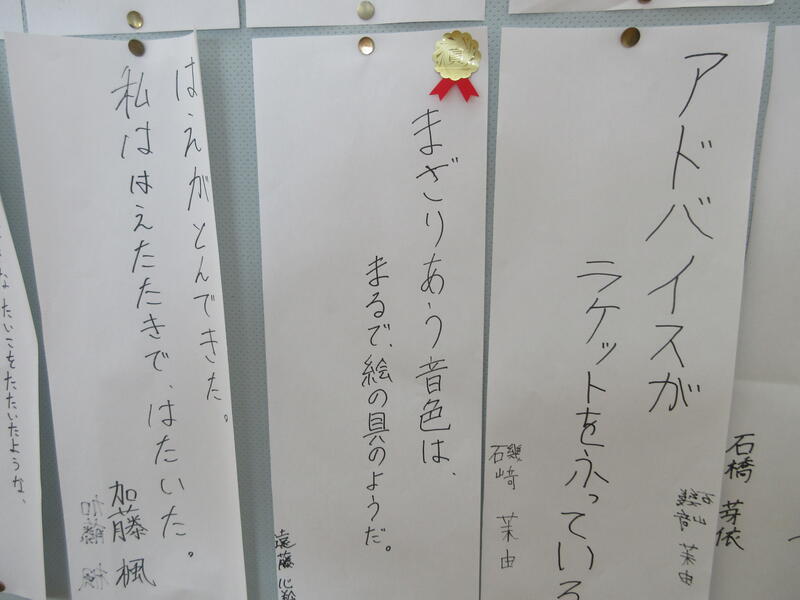 アドバイスが
ラケットをふっている
石橋 芽依
茉由
磯崎 茉由
賞
まざりあう音色は、
まるで、絵の具のようだ。
遠藤 心
はえがとんできた。
私ははえたたきで、はたいた。
加藤 楓
加藤 楓
なたいこをたたいたような、